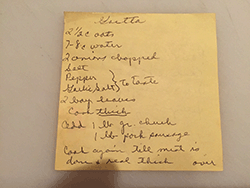 Goetta
2 1/2 c oats
7-8 c water
2 onions chopped
Salt
Pepper } to taste
Garlic Salt
2 bay leaves
Cook thick
Add 1 lb gr. chuck
1 lb pork sausage
Cook again till meat is
done & real thick over